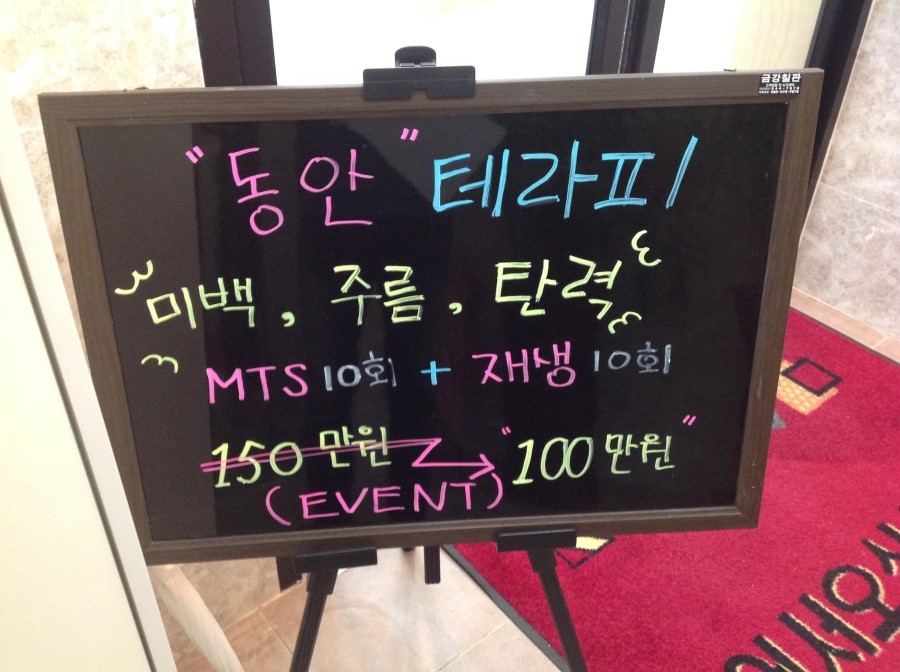 금강칠판
"동안" 테라피
미백, 주름, 탄력
MTS 10회 + 재생 10회
150만원 → "100만원"
(EVENT)